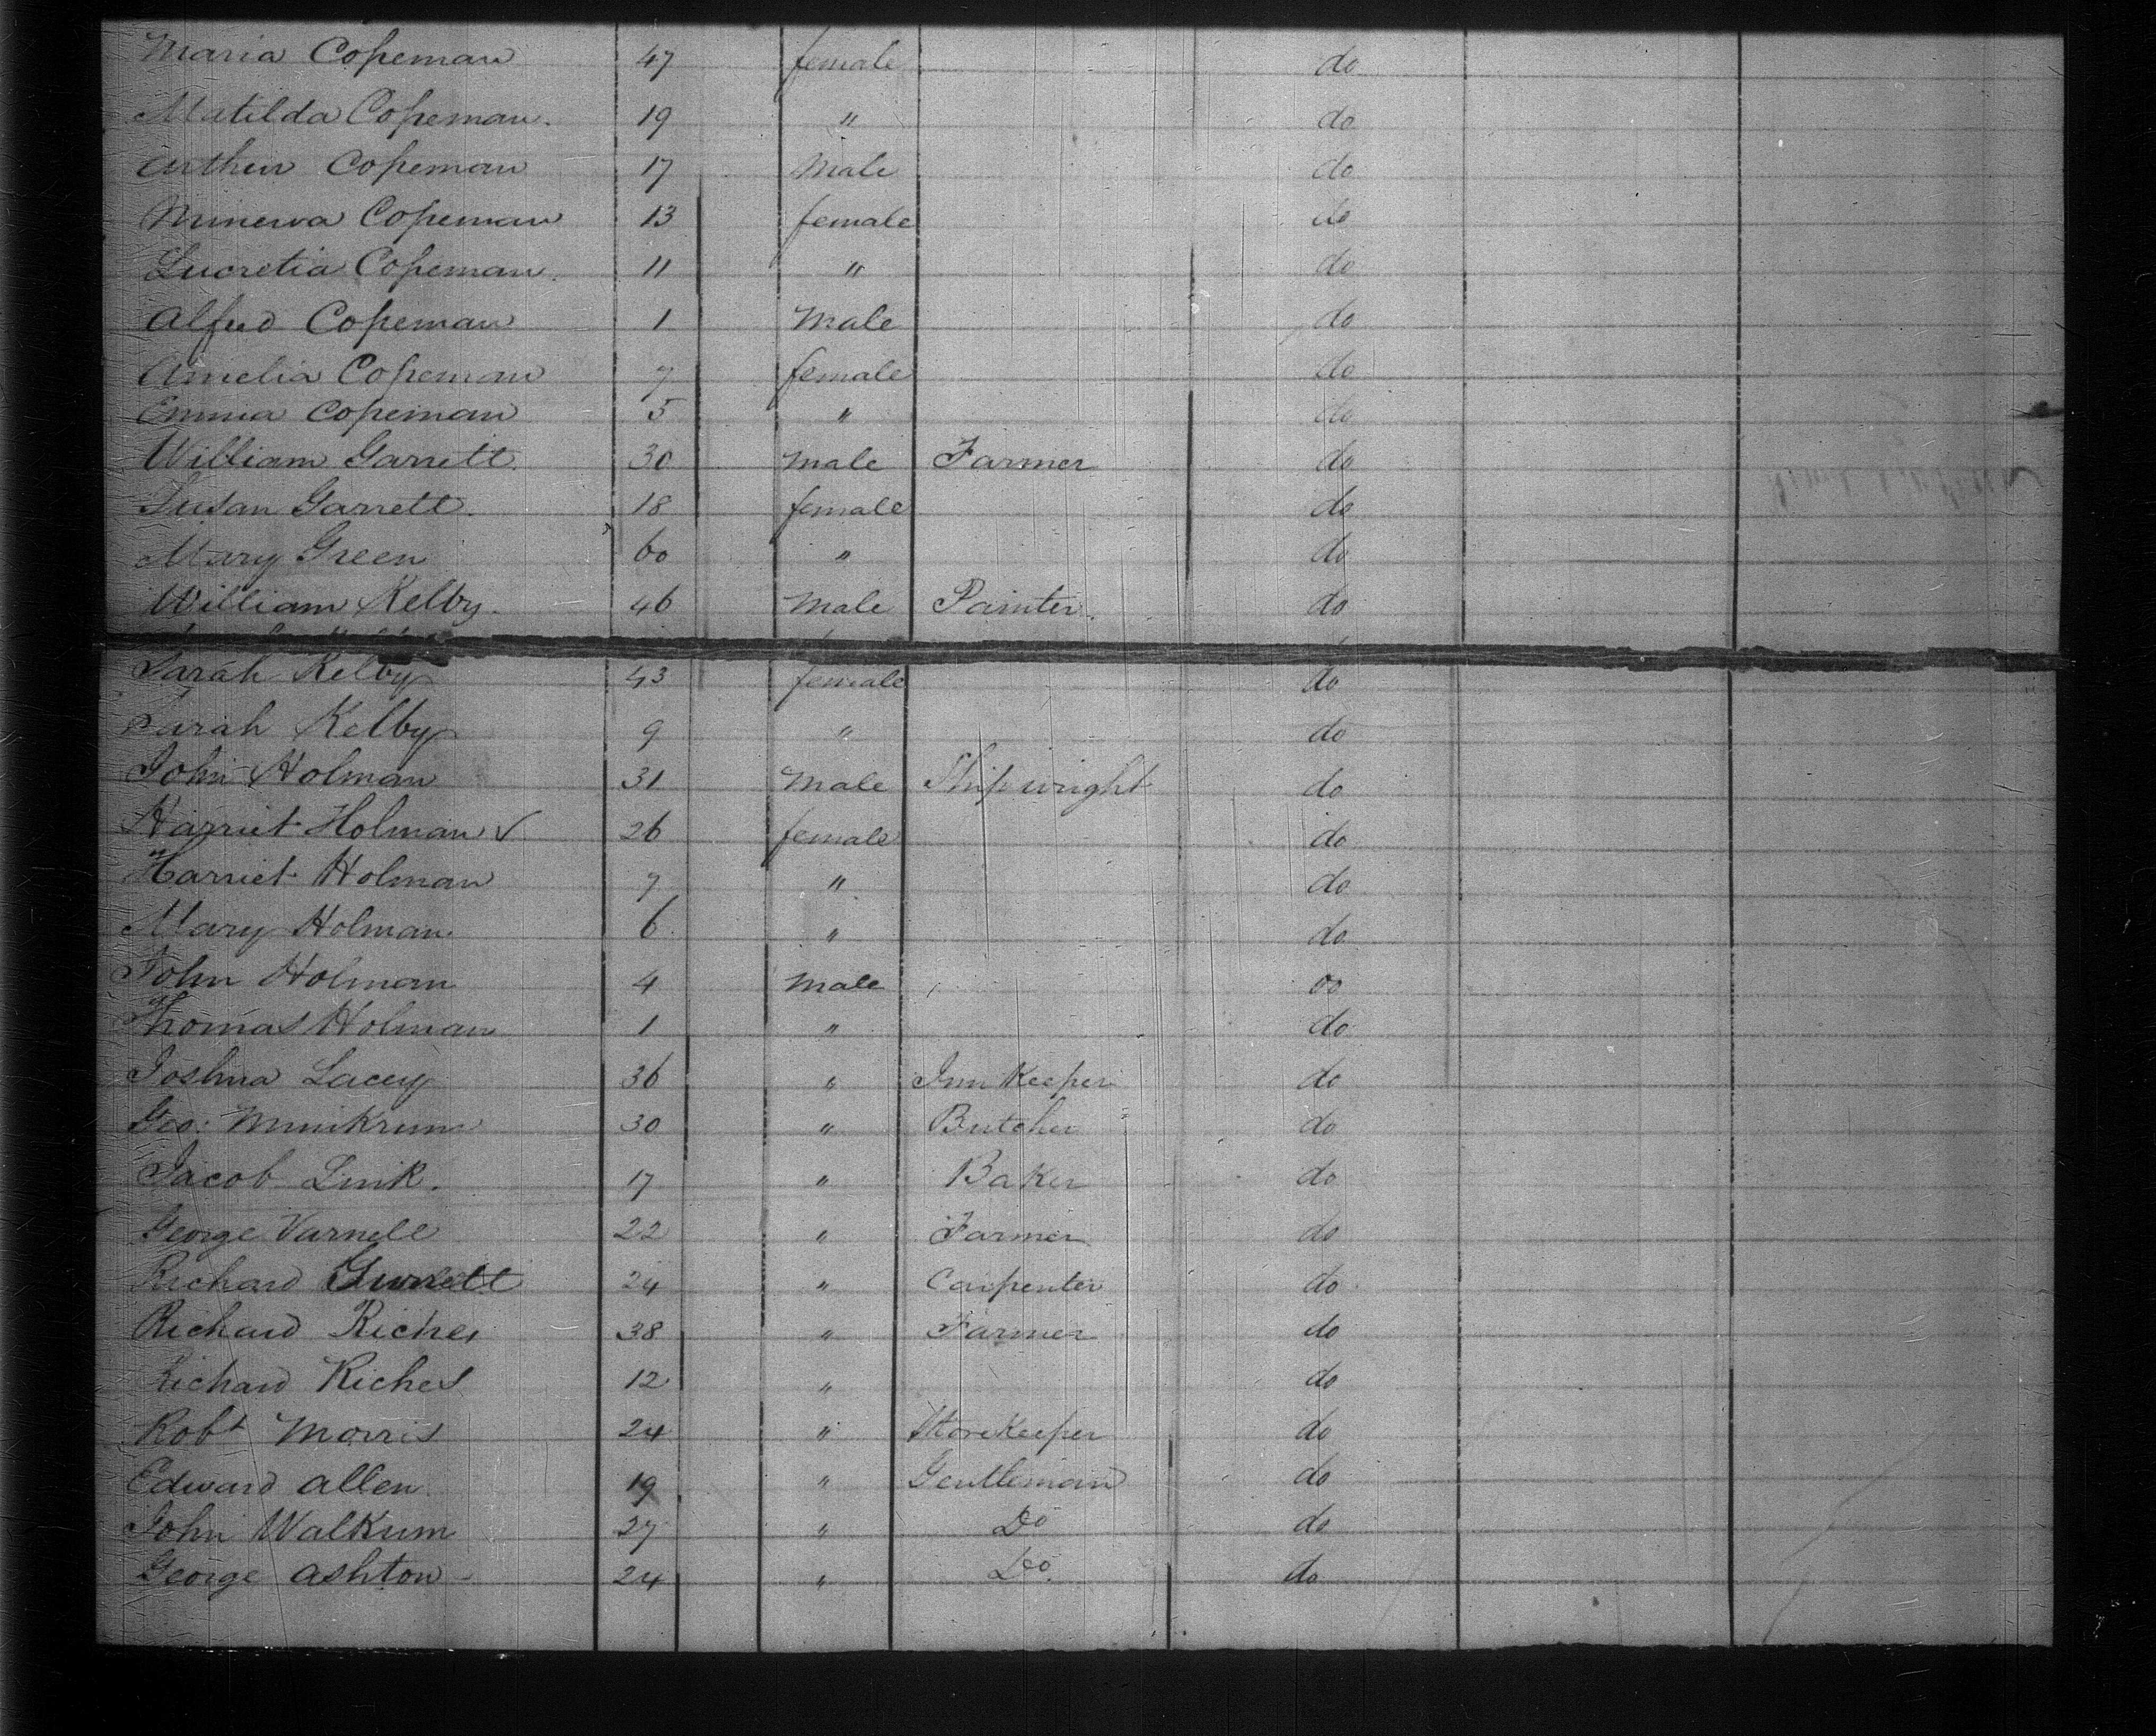 Maria Copeman 47 female do
Matilda Copeman. 19 " do
Arthur Copeman 17 Male do
Minerva Copeman 13 female do
Lucretia Copeman. 11 " do
Alfred Copeman 1 Male do
Amelia Copeman 7 female do
Emma Copeman 5 " do
William Garrett. 30 male Farmer do
Susan Garrett. 18 female do
Mary Green 60 " do
William Kelby. 46 Male Painter. do
Sarah Kelby 43 female do
Sarah Kelby 9 " do
John Holman 31 Male Shipwright do
Harriet Holman 26 female do
Harriet Holman 7 " do
Mary Holman 6 " do
John Holman 4 Male do
Thomas Holman 1 " do
Joshua Lacey 36 " Inn Keeper do
Geo: 30 " Butcher do
Jacob Link. 17 " Baker do
George Varnell 22 " Farmer do
Richard 24 " Carpenter do
Richard Riches 38 " Farmer do
Richard Riches 12 " do
Robt Morris 24 " Storekeeper do
Edward Allen 19 " Gentleman do
John Walkum 27 " Do do
George Ashton 24 " Do. do